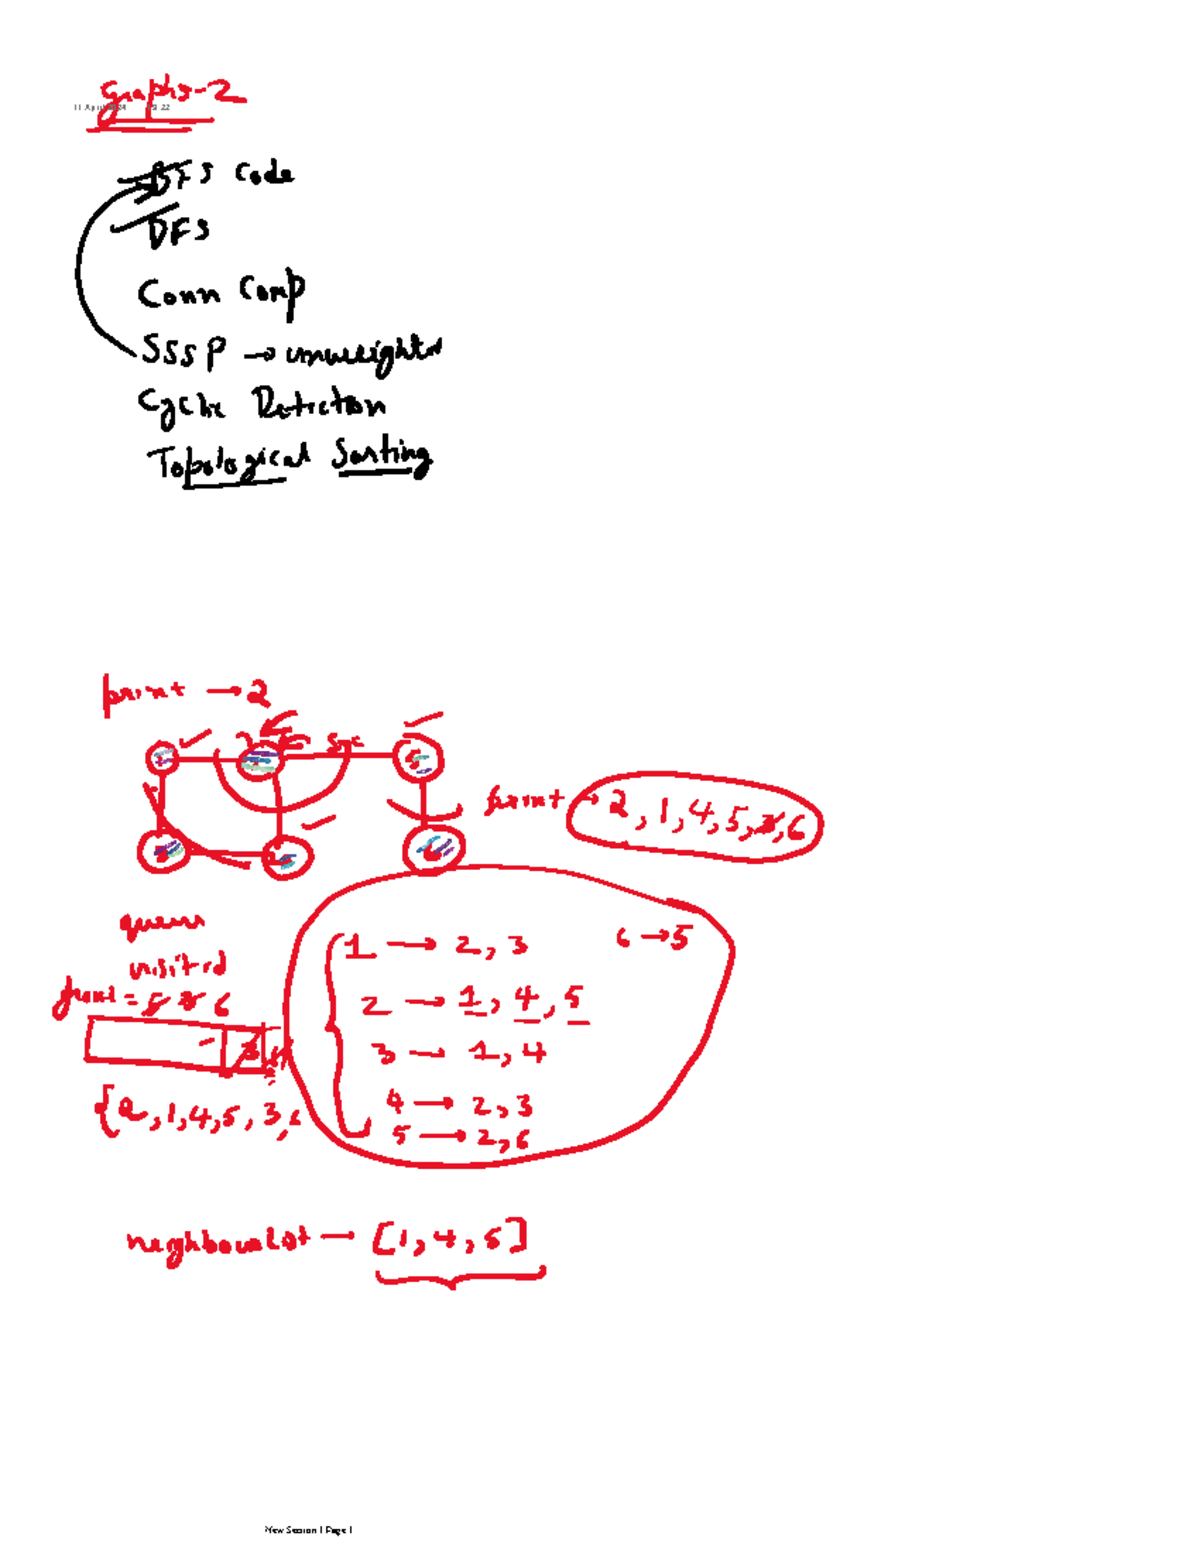 Graphs-2
BFS Code
DFS
Conn Comp
SSSP → unweighted
Cyclic Detection
Topological Sorting
print → 2
src
5
print → 2, 1, 4, 5, 3, 6
6
queue
visited
front = 5 3 6
3
{2, 1, 4, 5, 3, 6
1 → 2, 3
6 → 5
2 → 1, 4, 5
3 → 1, 4
4 → 2, 3
5 → 2, 6
neighbourList → [1, 4, 5]
New Section 1 Page 1